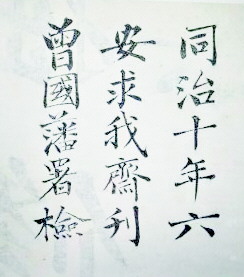 同治十年六
安求我齋刋
曾國藩署檢